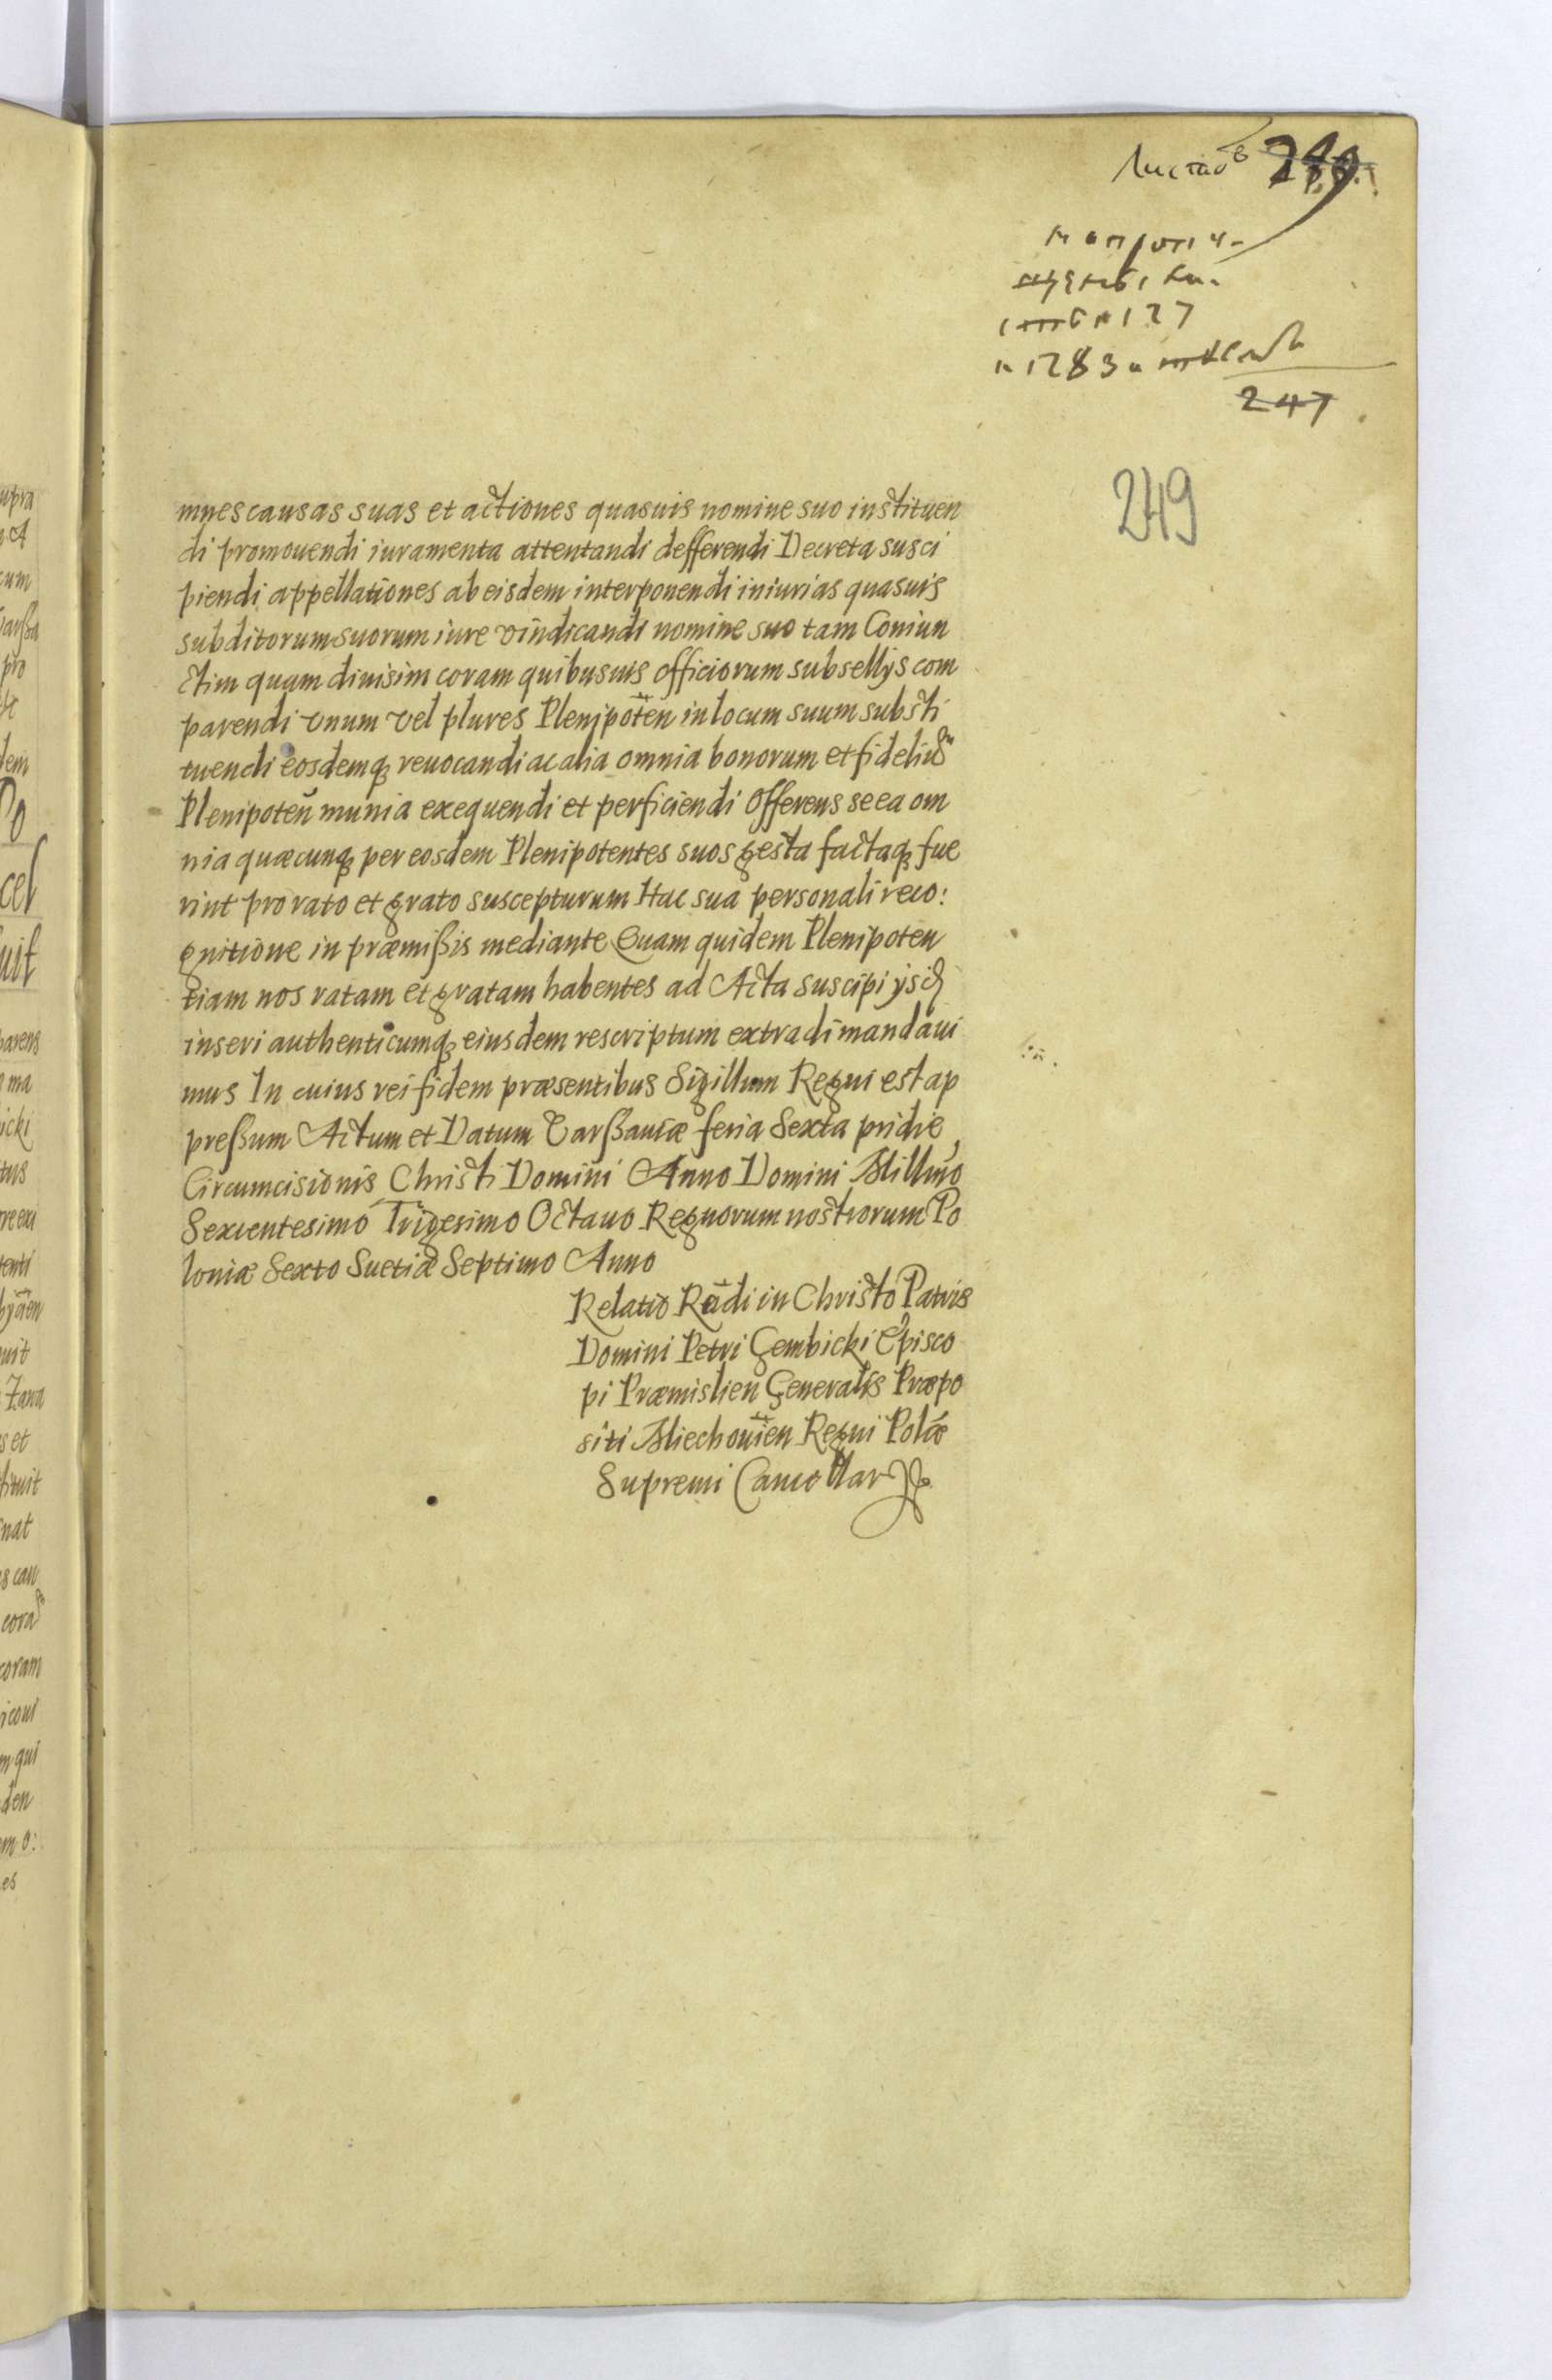 Листов 249
247
249
mnes causas suas et actiones quasuis nomine suo instituen
di promouendi iuramenta attentandi defferendi Decreta susci
piendi appellationes ab eisdem interponendi iniurias quasuis
subditorum suorum iure vindicandi nomine suo tam Coniun
ctim quam diuisim coram quibusuis officiorum subsellijs com
parendi vnum vel plures Plenipoten in locum suum substi
tuendi eosdemq reuocandi ac alia omnia bonorum et fideliu
Plenipoten munia exequendi et perficiendi Offerens se ea om
nia quæcunq per eosdem Plenipotentes suos gesta factaq fue
rint pro rato et grato suscepturum Hac sua personali reco:
gnitione in præmißis mediante Quam quidem Plenipoten
tiam nos ratam et gratam habentes ad Acta suscipi ysq
inseri authenticumq eiusdem rescriptum extradi mandaui
mus In cuius rei fidem præsentibus Sigillum Regni est ap
preßum Actum et Datum Varßauiæ feria Sexta pridie
Circumcisionis Christi Domini Anno Domini Millmo
Sexcentesimo Trigesimo Octauo Regnorum nostrorum Po
loniæ Sexto Suetiæ Septimo Anno
Relatio Rndi in Christo Patris
Domini Petri Gembicki Episco
pi Præmislien Generalis Præpo
siti Miechouien Regni Polæ
Supremi Cancellarij